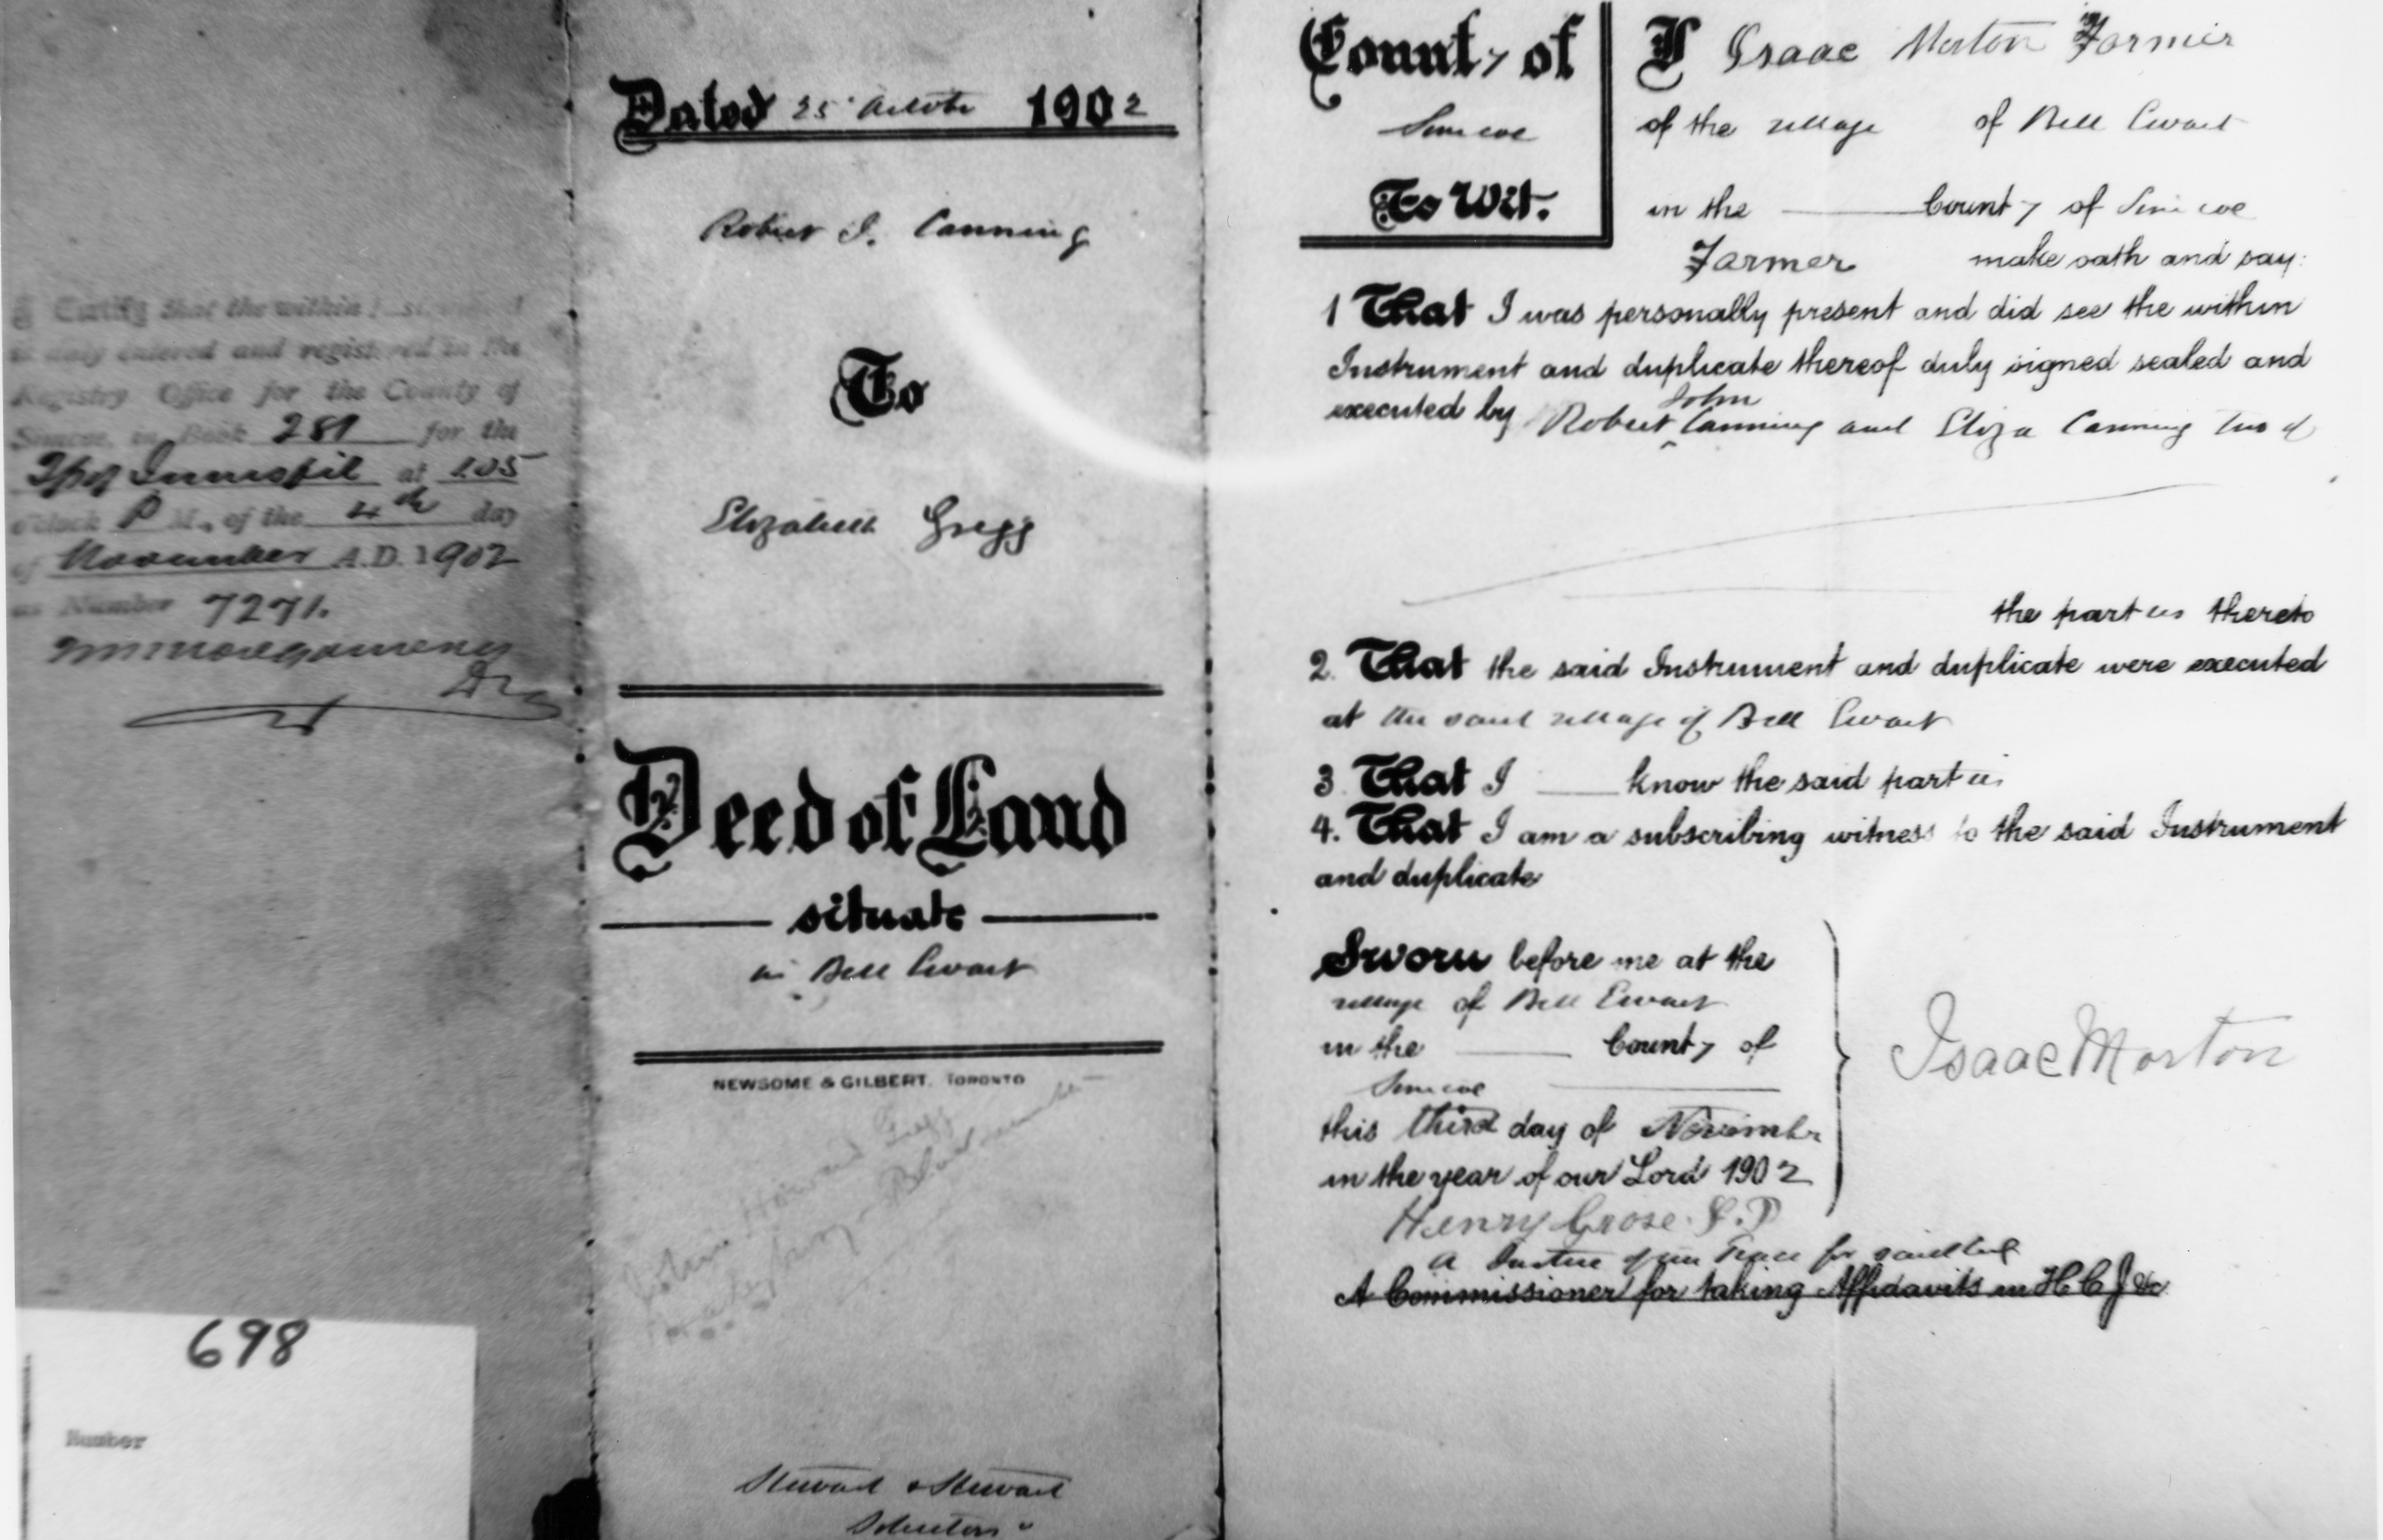 I Certify that the within
is duly entered and registered in the
Registry Office for the County of
Simcoe, in Book 281 for the
Tp of Innisfil at 1.05
o'clock P M., of the 4th day
of November A.D. 1902
as Number 7271.
698
Number
Dated 25 October 1902
Robert J. Canning
To
Elizabeth Gregg
Deed of Land
situate
in Bell Ewart
NEWSOME & GILBERT. TORONTO
Gregg
Stewart & Stewart
Solicitors
County of
Simcoe
To Wit:
I Isaac Morton Farmer
of the village of Bell Ewart
in the County of Simcoe
Farmer make oath and say:
1 That I was personally present and did see the within
Instrument and duplicate thereof duly signed sealed and
executed by Robert John Canning and Eliza Canning two of
the parties thereto
2. That the said Instrument and duplicate were executed
at the said village of Bell Ewart
3 That I know the said parties
4. That I am a subscribing witness to the said Instrument
and duplicate
Sworn before me at the
village of Bell Ewart
in the County of
Simcoe
this third day of November
in the year of our Lord 1902
Isaac Morton
Henry Grose J.P
A Justice of the Peace for said
A Commissioner for taking Affidavits in H C J &c